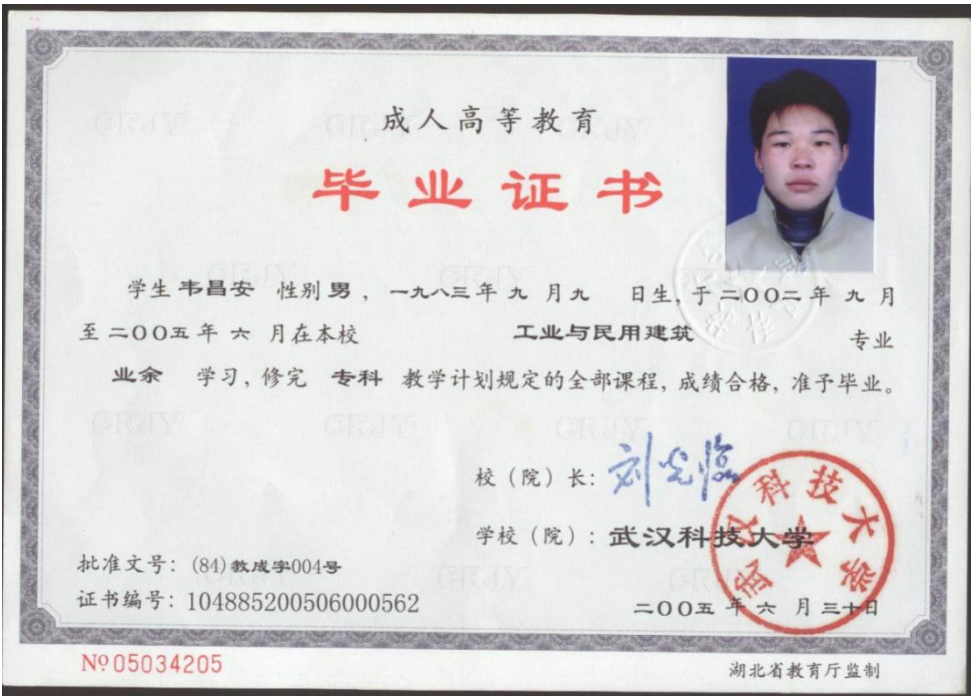 成人高等教育
毕业证书
学生 韦昌安 性别 男 ，一九八三年 九 月 九 日生，于 二〇〇二 年 九 月
至 二〇〇五 年 六 月在本校 工业与民用建筑 专业
业余 学习，修完 专科 教学计划规定的全部课程，成绩合格，准予毕业。
校（院）长：刘光临
学校（院）：武汉科技大学
武汉科技大学
批准文号：(84)教成字004号
证书编号：104885200506000562
二〇〇五 年 六 月 三十日
№05034205
湖北省教育厅监制